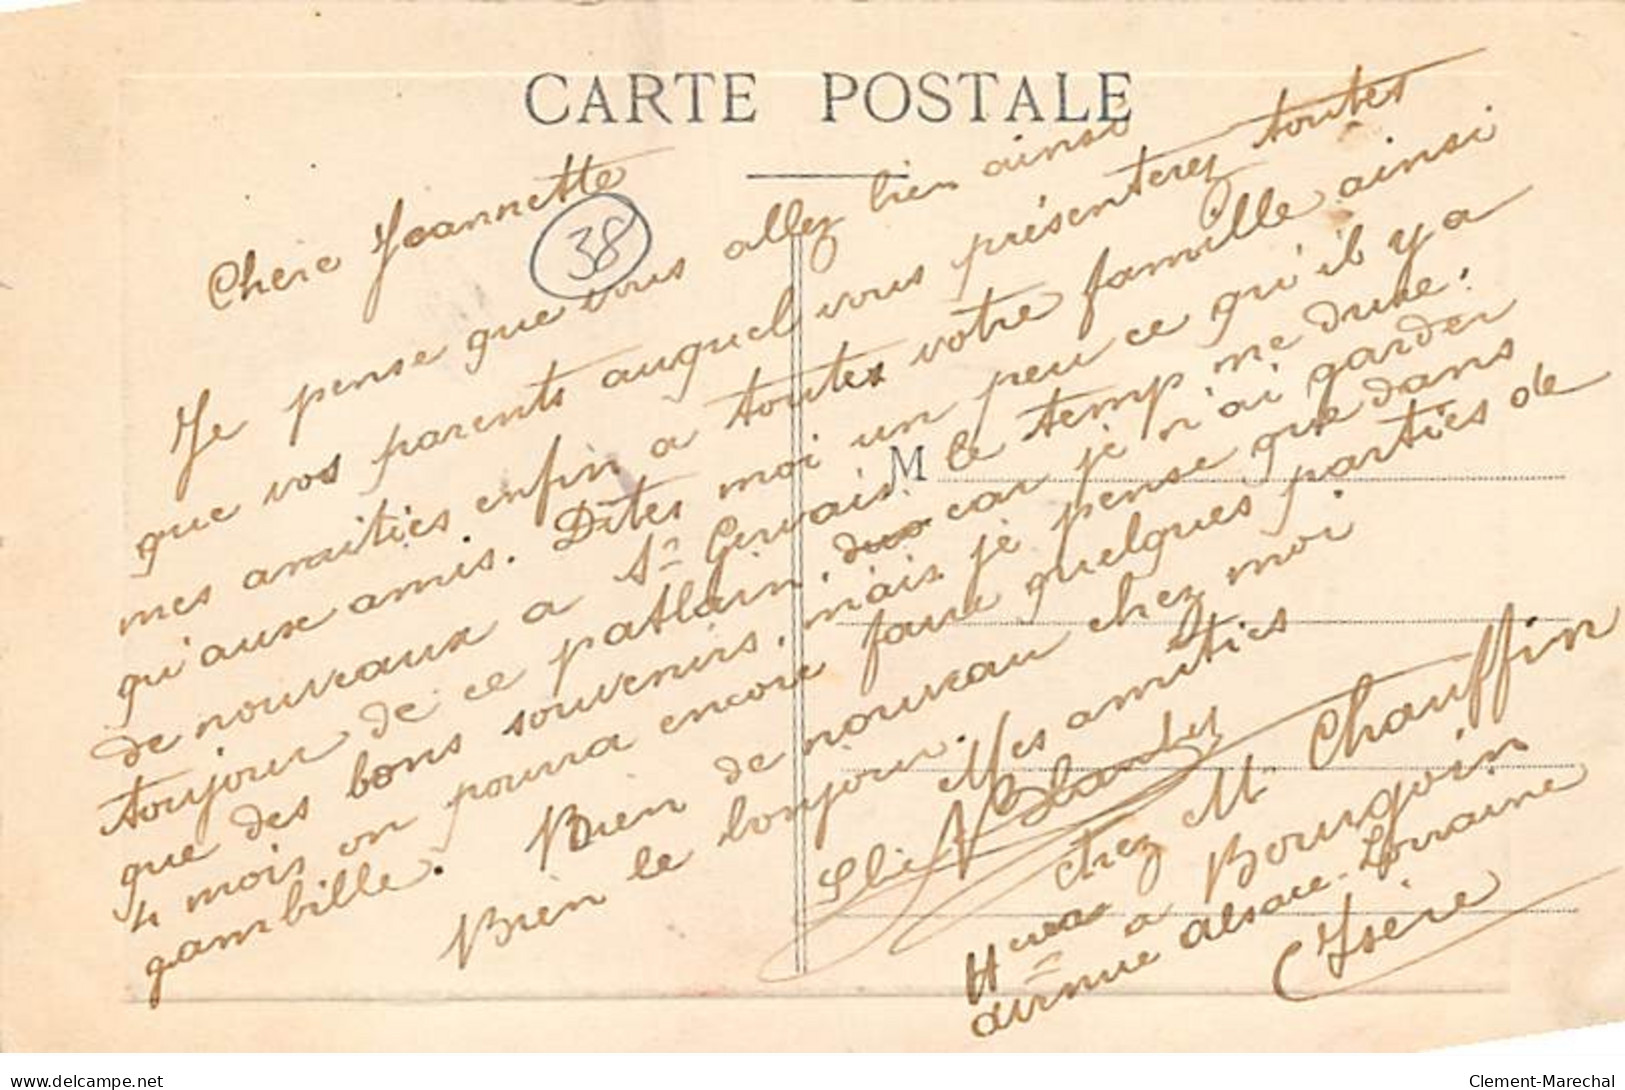 CARTE POSTALE
38
Chère Jeannette
Je pense que vous allez bien ainsi
que vos parents auquel vous présenterez toutes
mes amitiés enfin a toutes votre famille ainsi
qu'aux amis. Dites moi un peu ce qu'il y a
de nouveaux a St Gervais. le temp me dure!
toujour de ce patlain, car je n'ai garder
que des bons souvenirs, mais je pense que dans
4 mois on pourra encore faire quelques parties de
gambille. Bien de nouveau chez moi.
Bien le bonjour. Mes amitiés
M
chez Mr Chauffin
a Bourgoin
avenue alsace-Lorraine
(Isère
delcampe.net
Clement-Marechal